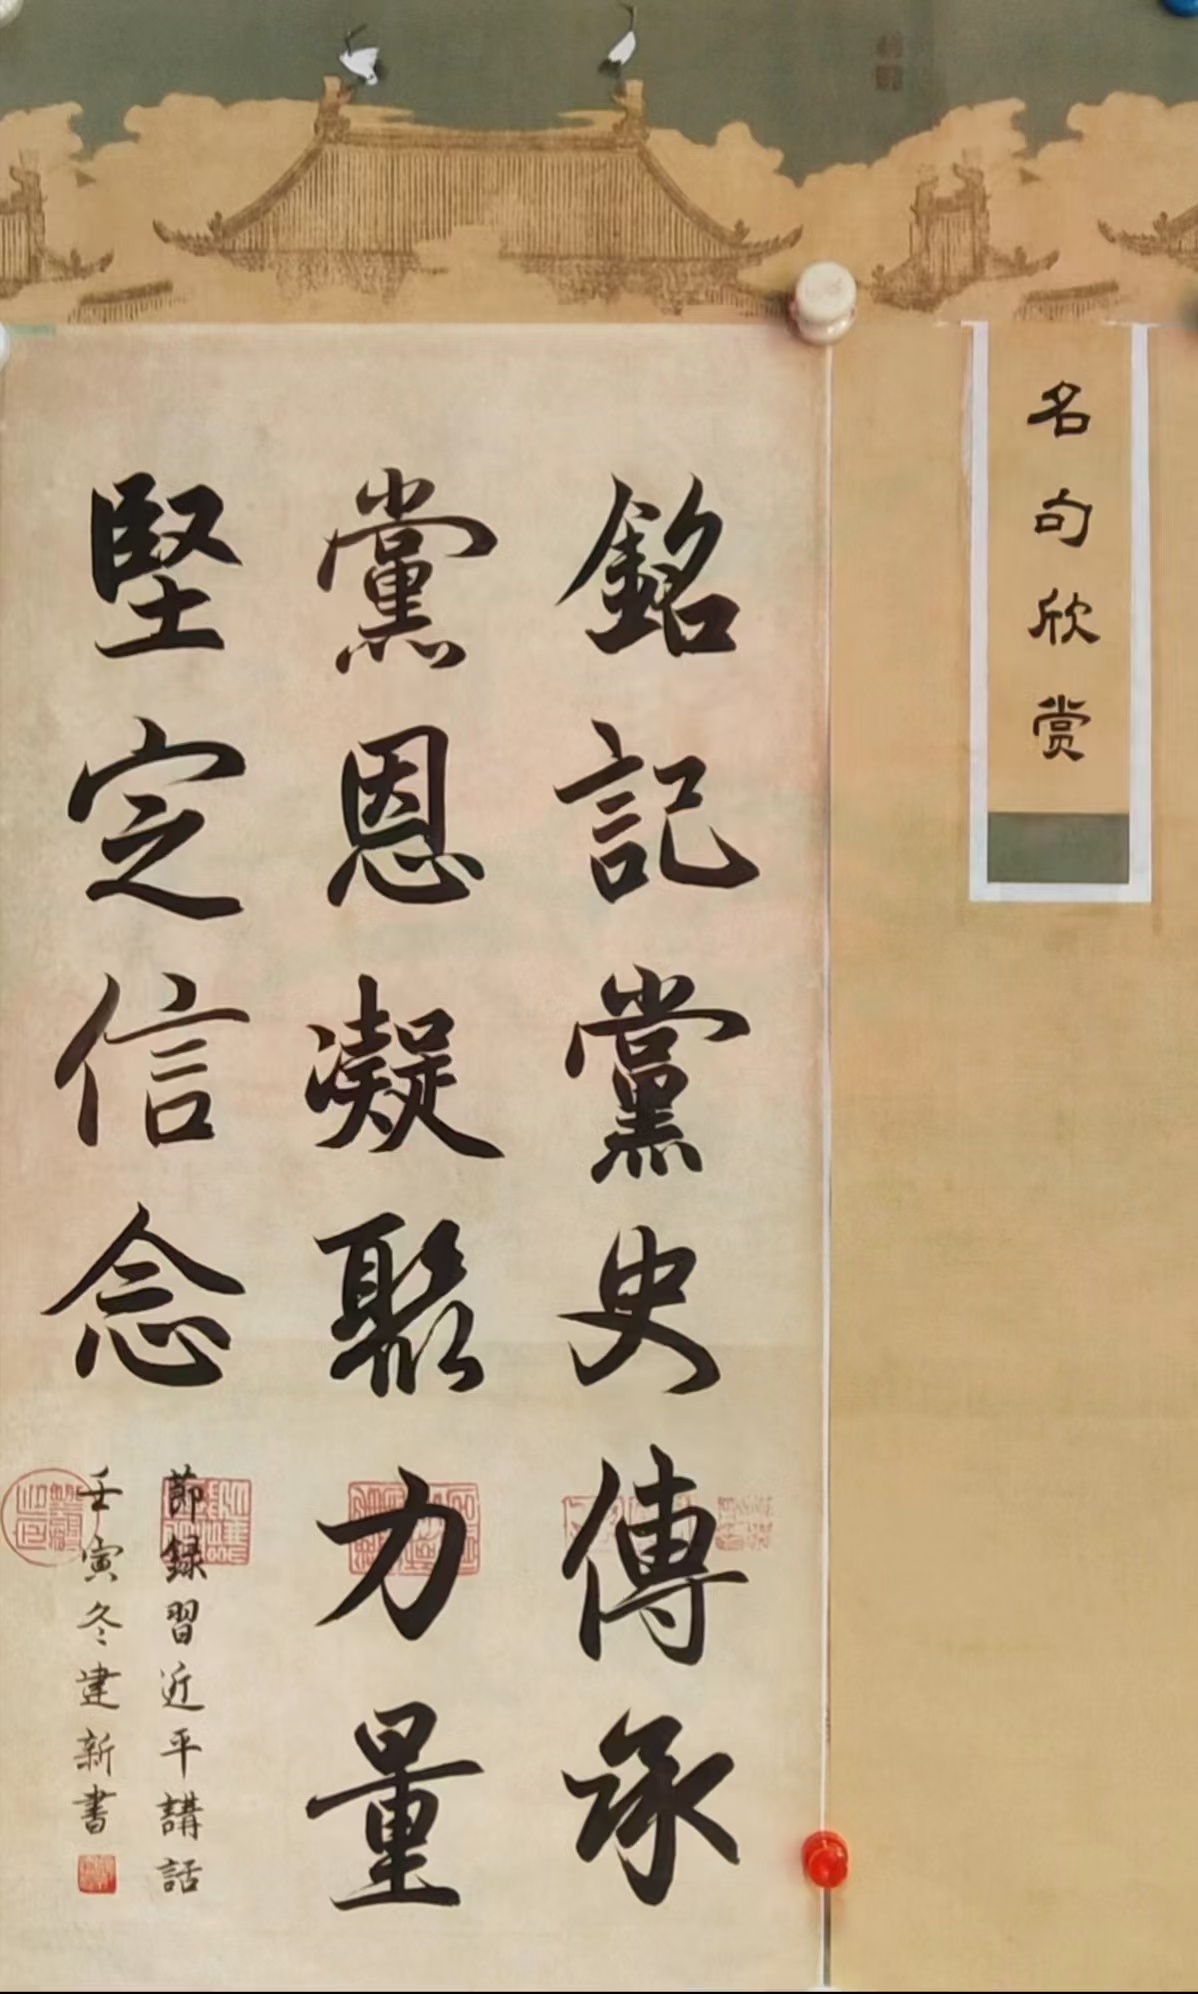 名句欣赏
銘記黨史傳承
黨恩凝聚力量
堅定信念
節録習近平講話
壬寅冬建新書